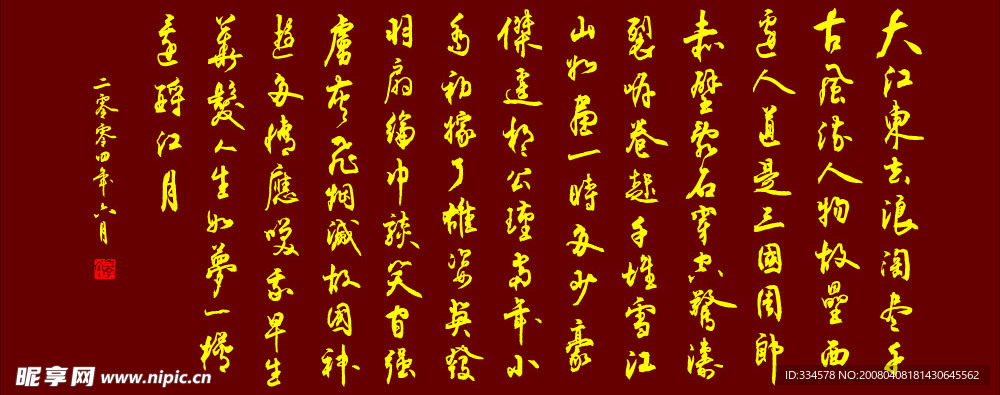 大江東去浪淘尽千
古風流人物故壘西
邊人道是三國周郎
赤壁亂石穿空驚濤
裂岸卷起千堆雪江
山如畫一時多少豪
傑遥想公瑾當年小
喬初嫁了雄姿英發
羽扇綸巾談笑間强
虜灰飛烟滅故國神
遊多情應笑我早生
華髮人生如夢一樽
還酹江月
二零零四年六月
昵享网 www.nipic.cn
ID:334578 NO:20080408181430645562